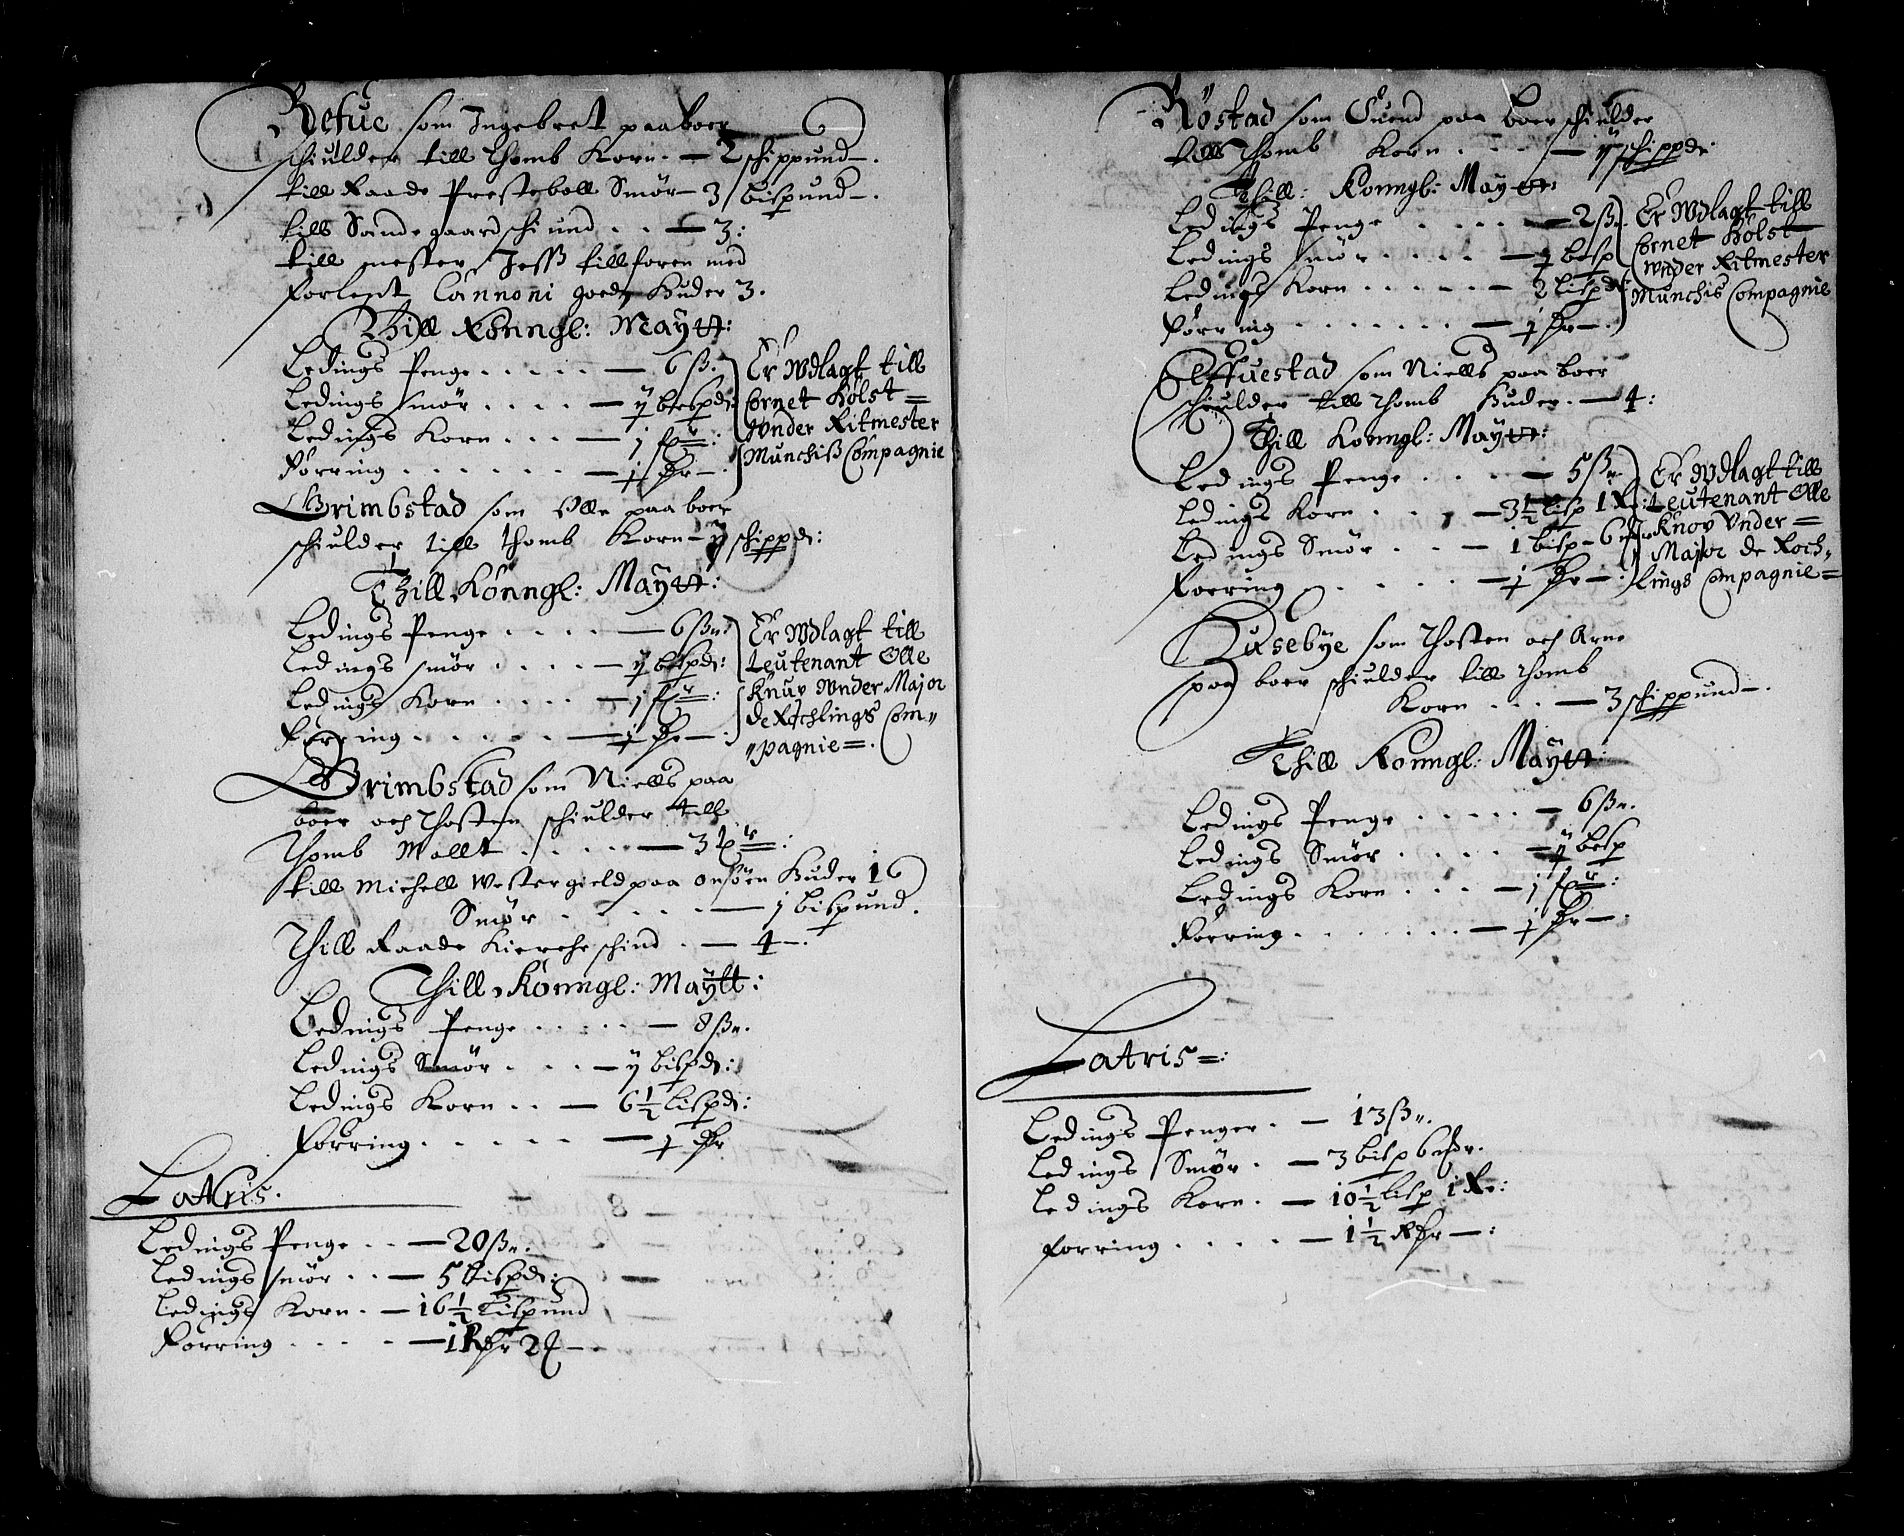 Refue som Ingebret paaboer
schiulder till Thomb Korn. — 2 schippund —.
till Raade Presteboll Smør — 3 bispund —.
till Sande gaard schiund . . — 3:
till mester Jess tillforen med
forlent Cannoni goeds Huder 3.
Thill Konngl: Maytt:
Ledings Penge . . . . . — 6 ß.
Ledings smør . . . . — ij bispd:
Ledings Korn . . . — j fr:
Forring . . . . . . — j Ør —.
Er Wdlagt till
Cornet Holst =
Wnder Ritmester
Munchiß Compagnie
Grimbstad som Olle paa boer
schiulder till Thomb Korn — ij schippd:
Thill Konngl: Maytt:
Ledings Penge . . . . — 6 ß.
Ledings smør . . . . — ij bispd:
Ledings Korn . . . . — j fr:
Forring . . . . . — j Ør —:
Er Wdlagt till
Leutenant Olle
Knuv Wnder Major
De Rochlings Com„
„pagnie =.
Grimbstad som Niells paa
boer och Thosten schiulder till
Thomb Mallt . . . . . — 3
till Michell Westergield paa Onsøen Huder 16
Smør . . . . . — j bispund.
Thill Raade Kierche schind . — 4 —.
Thill Konngl: Maytt:
Ledings Penge . . . . . — 8 ß.
Ledings Smør . . . — ij bispd:
Ledings Korn . . — 6 1/2 Lispd:
Forring . . . . . — j Ør
Latris.
Ledings Penge . . — 20 ß.
Ledings smør . . — 5 bispd:
Ledings Korn . — 16 1/2 Lispund
Forring . . . . — 1 R Ør 2
Röstad som Suend paa boer schiulder
till Thomb Korn . . . . — ij schippd:
Thill: Konngl: Maytt:
Ledings Penge . . . . . — 2 ß.
Ledings smør . . . . — j bisp
Ledings Korn . . . . . — 2 Lispd:
Forring . . . . . . . — j Ør —.
Er Wdlagt till
Cornet Holst
Wnder Ritmester
Munchis Compagnie
Elffuestad som Niells paa boer
schiulder till Thomb Huder. — 4:
Thill Konngl: Maytt:
Ledings Penge . . . . — 5 ß.
Ledings Korn . . . . — 3 1/2 Lisp 1 R:
Ledings Smør . . . — 1 bisp — 6
Forring . . . . . — j Ør —:
Er Wdlagt till
Leutenant Olle
Knov Vnder =
Major de Roch„
lings Compagnie =
Husebye som Thosten och Arne
paa boer schiulder till Thomb
Korn . . . — 3 schippund —.
Thill Konngl: Maytt:
Ledings Penge . . . . . — 6 ß.
Ledings Smør . . . . — ij bisp
Ledings Korn . . . — j fr:
Forring . . . . . . . — j Ør —.
Latris =:
Ledings Penger . — 13 ß.
Ledings Smør . — 3 bisp 6
Ledings Korn . — 10 1/2 Lisp 1 R:
Forring . . . . — 1 1/2 R Ør —: